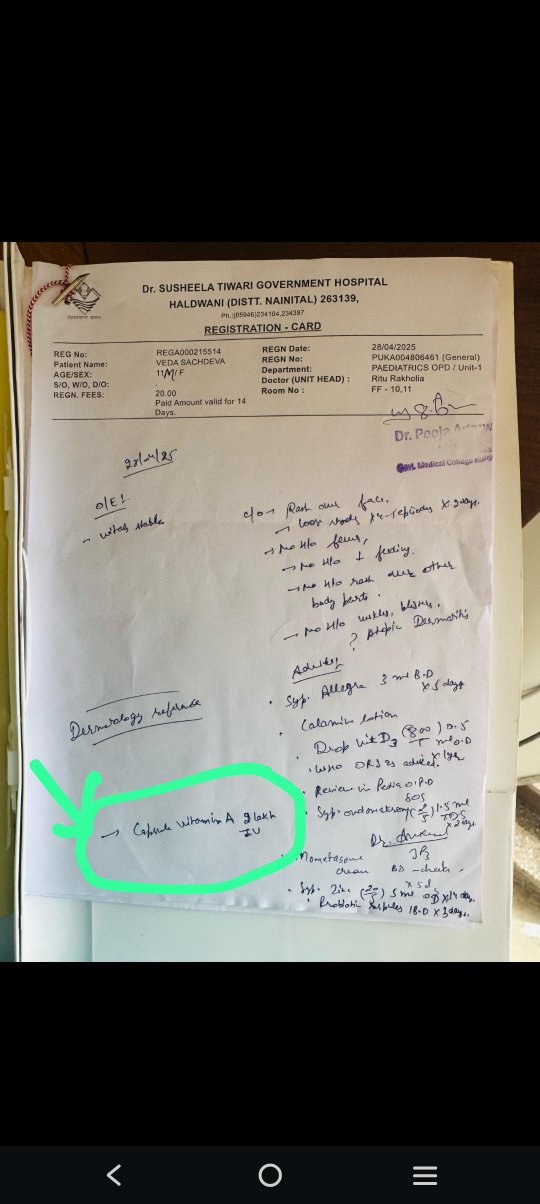 Dr. SUSHEELA TIWARI GOVERNMENT HOSPITAL
HALDWANI (DISTT. NAINITAL) 263139,
Ph.:(05946)234104,234397
REGISTRATION - CARD
REG No: REGA000215514
Patient Name: VEDA SACHDEVA
AGE/SEX: 11/M/ F
S/O, W/O, D/O: .
REGN. FEES: 20.00
Paid Amount valid for 14
Days.
REGN Date: 28/04/2025
REGN No: PUKA004806461 (General)
Department: PAEDIATRICS OPD / Unit-1
Doctor (UNIT HEAD) : Ritu Rakholia
Room No : FF - 10,11
Dr. Pooja
Govt. Medical College
28/4/25
O/E:
- vitals stable
c/o → Rash over face.
→ loose stools x 4-5 episodes x 2 days.
→ No H/o fever,
→ No H/o ↓ feeding.
→ No H/o rash over other
body parts.
→ No H/o blisters.
? Atopic Dermatitis
Advice
• Syp. Allegra 3 ml B.D
x 5 days
Dermatology reference
• Calamin lotion
• Drop Vit D3 (800/1) 0.5
ml O.D
x 1yr
• WHO ORS as advised.
• Review in Pedia O.P.D
SOS
• Syp. (2/5) 1.5 ml
TDS
x 2 days
→ Capsule Vitamin A 2 lakh
IU
Dr.
JR3
• Mometasone
cream BD
x 5d
• Syp. Zinc (20/5) 5 ml OD x 14 day.
• Probiotic B.D x 3 days.